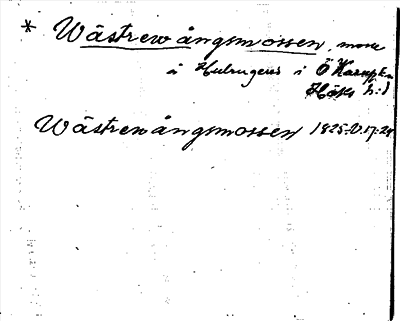 * Wästrew ångsmossen, mosse
å Hulrugered i Ö Karups sn
Höks h:d
Wästrewångsmossen 1825 17:24